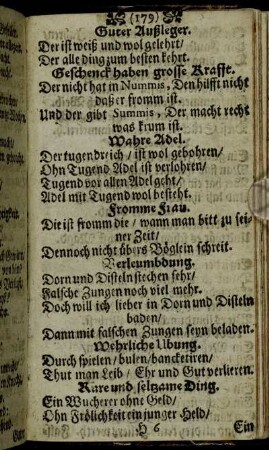 (179)
Guter Außleger.
Der ist weiß und wol gelehrt/
Der alle ding zum besten kehrt.
Geschenck haben grosse Krafft.
Der nicht hat in Nummis, Den hilfft nicht
daß er fromm ist.
Und der gibt Summis, Der macht recht
was krum ist.
Wahre Adel.
Der tugendreich / ist wol gebohren/
Ohn Tugend Adel ist verlohren/
Tugend vor allen Adel geht/
Adel mit Tugend wol besteht.
Fromme Frau.
Die ist fromm die / wann man bitt zu sei-
ner Zeit/
Dennoch nicht übers Böglein schreit.
Verleumbdung.
Dorn und Disteln stechen sehr/
Falsche Zungen noch viel mehr.
Doch will ich lieber in Dorn und Disteln
baden/
Dann mit falschen Zungen seyn beladen.
Wehrliche Ubung.
Durch spielen / bulen / bancketiren/
Thut man Leib / Ehr und Gut verlieren.
Rare und seltzame Ding.
Ein Wucherer ohne Geld/
Ohn Frölichkeit ein junger Held/
H 6
Ein